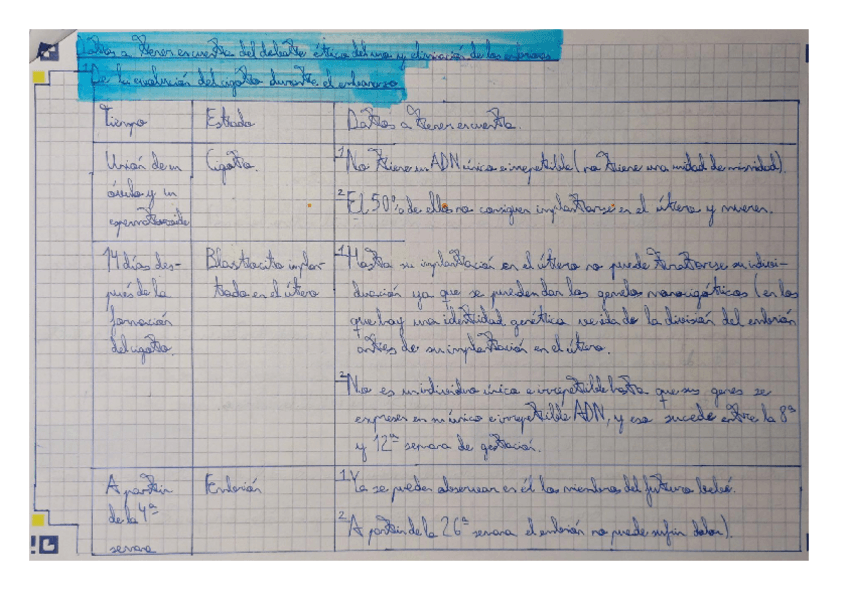 Datos a tener en cuenta del debate ético del uso y eliminación de los embriones
De la evolución del cigoto durante el embarazo
Tiempo
Estado
Datos a tener en cuenta.
Unión de un
óvulo y un
espermatozoide
Cigoto.
1. No tiene un ADN único e irrepetible (no tiene una unidad de mismidad).
2. El 50% de ellos no consiguen implantarse en el útero y mueren.
14 días des-
pués de la
formación
del cigoto.
Blastocito implan-
tado en el útero
1. Hasta su implantación en el útero no puede tratarse su indivi-
duación ya que se pueden dar los gemelos monocigóticos (en los
que hay una identidad genética venida de la división del embrión
antes de su implantación en el útero.
2. No es un individuo único e irrepetible hasta que sus genes se
expresen en su único e irrepetible ADN, y eso sucede entre la 8ª
y 12ª semana de gestación.
A partir
de la 4ª
semana
Embrión
1. Ya se pueden observar en él los miembros del futuro bebé.
2. A partir de la 26ª semana el embrión no puede sufrir dolor).